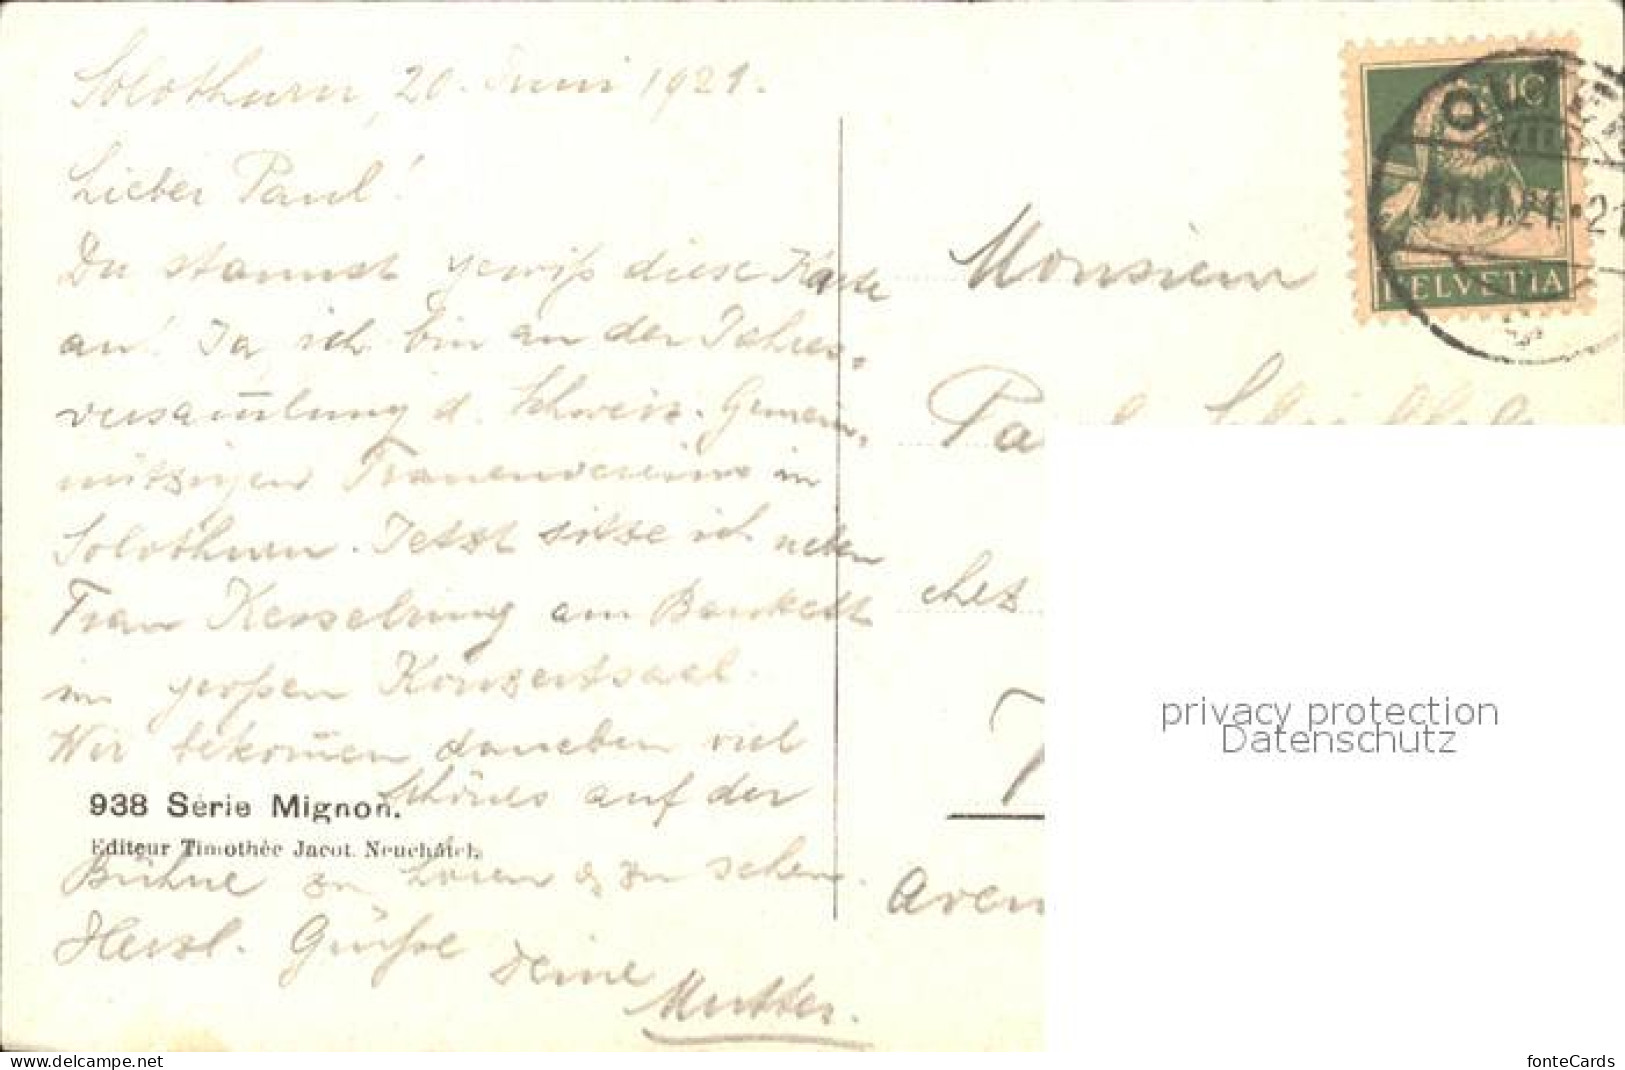 Solothurn, 20. Juni 1921.
Lieber Paul!
Du staunst gewiß diese Karte
an! Ja, ich bin an der Jahres-
versam̄lung d. Schweiz. Gemein-
nützigen Frauenvereins in
Solothurn. Jetzt sitze ich neben
Frau Kesselring am Bankett
im großen Konzertsaal.
Wir bekom̄en daneben viel
Schönes auf der
938 Série Mignon.
Editeur Timothée Jacot. Neuchâtel.
Bühne zu hören & zu sehen.
Herzl. Grüße Deine
Mutter.
10
HELVETIA
OLTEN
21.VI.21.21
Monsieur
Paul
chez
T
Aven
privacy protection
Datenschutz
www.delcampe.net
fonteCards